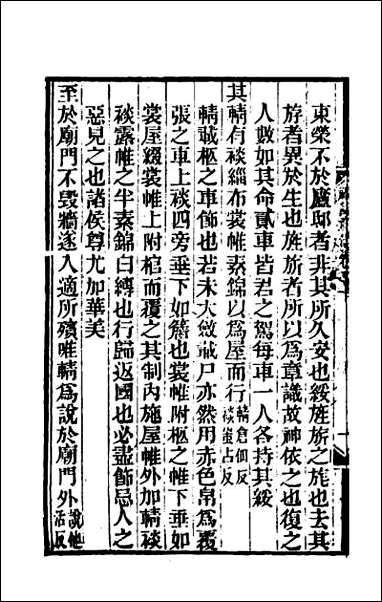 東榮不於廬邸者非其所久安也綏旌旂之旄也去其
旂者異於生也旌旂者所以為章識故神依之也復之
人數如其命貳車皆君之駕每車一人各持其綏
其輤有裧緇布裳帷素錦以為屋而行輤倉個反裧蚩占反
輤載柩之車飾也若未大斂載尸亦然用赤色帛為覆
張之車上裧四旁垂下如簷也裳帷附柩之帷下垂如
裳屋綴裳帷上附棺而覆之其制內施屋帷外加輤裧
裧露帷之半素錦白縳也行歸返國也必盡飾忌人之
惡見之也諸侯尊尤加華美
至於廟門不毀牆遂入適所殯唯輤為說於廟門外說他活反